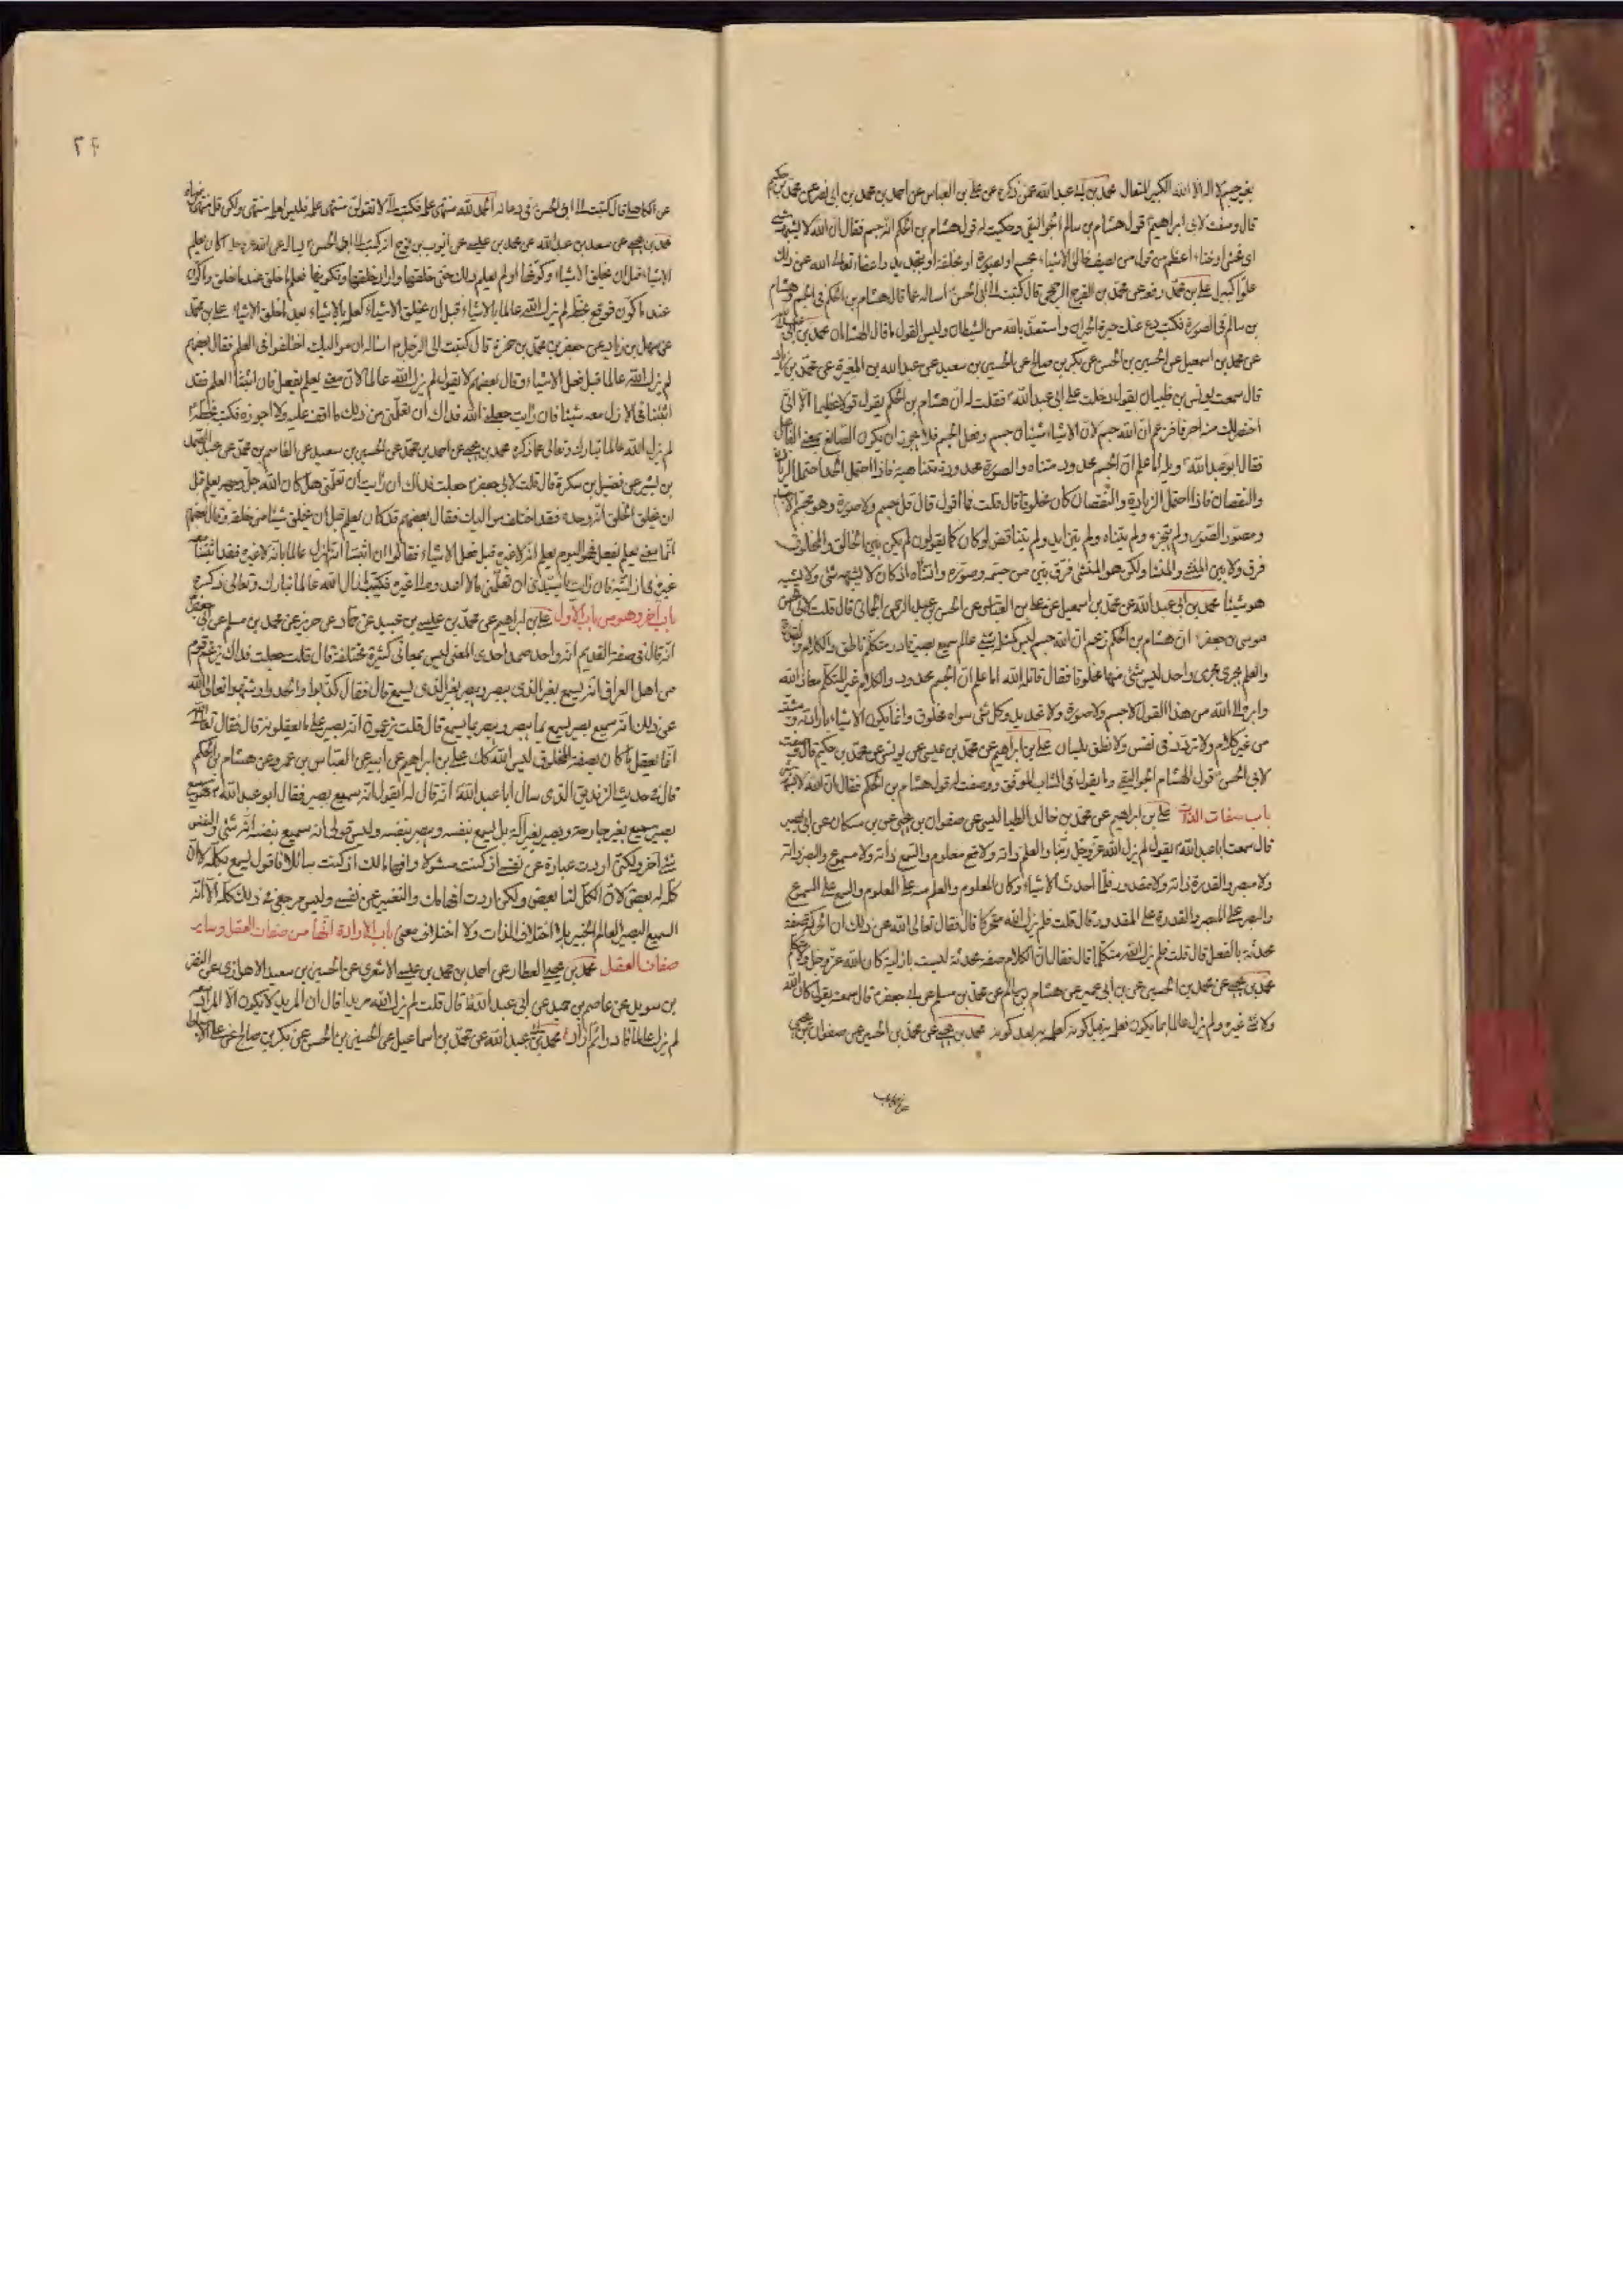 بغير جسم لا اله الا الله الكبير المتعال محمد بن ابى عبد الله عمن ذكره عن على بن العباس عن احمد بن محمد بن ابى نصر عن محمد بن حكيم
قال وصفت لابى ابراهيم ع قول هشام بن سالم الجواليقى وحكيت له قول هشام بن الحكم انه جسم فقال ان الله لا يشبهه شئ
اى فحش او خناء اعظم من قول من يصف خالق الاشياء بجسم او بصورة او بخلقة او بتحديد واعضاء تعالى الله عن ذلك
علوا كبيرا على بن محمد رفعه عن محمد بن الفرج الرخجى قال كتبت الى ابى الحسن ع اساله عما قال هشام بن الحكم فى الجسم وهشام
بن سالم فى الصورة فكتب دع عنك حيرة الحيران واستعذ بالله من الشيطان وليس القول ما قال الهشامان محمد بن ابى عبد الله
عن محمد بن اسمعيل عن الحسين بن الحسن عن بكر بن صالح عن الحسين بن سعيد عن عبد الله بن المغيرة عن محمد بن زياد
قال سمعت يونس بن ظبيان يقول دخلت على ابى عبد الله ع فقلت له ان هشام بن الحكم يقول قولا عظيما الا انى
اختصر لك منه احرفا فزعم ان الله جسم لان الاشياء شيئان جسم وفعل الجسم فلا يجوز ان يكون الصانع بمعنى الفعل
فقال ابو عبد الله ع ويله اما علم ان الجسم محدود متناه والصورة محدودة متناهية فاذا احتمل الحد احتمل الزيادة
والنقصان فاذا احتمل الزيادة والنقصان كان مخلوقا قال قلت فما اقول قال قل لا جسم ولا صورة وهو مجسم الاجسام
ومصور الصور ولم يتجزء ولم يتناه ولم يتزايد ولم يتناقص لو كان كما يقولون لم يكن بين الخالق والمخلوق
فرق ولا بين المنشئ والمنشا ولكن هو المنشئ فرق بين من جسمه وصوره وانشاه اذ كان لا يشبهه شئ ولا يشبه
هو شيئا محمد بن ابى عبد الله عن محمد بن اسمعيل عن على بن العباس عن الحسن بن عبد الرحمن الحمانى قال قلت لابى الحسن
موسى بن جعفر ع ان هشام بن الحكم زعم ان الله جسم ليس كمثله شئ عالم سميع بصير قادر متكلم ناطق والكلام والقدرة
والعلم يجرى مجرى واحد ليس شئ منها مخلوقا فقال قاتله الله اما علم ان الجسم محدود والكلام غير المتكلم معاذ الله
وابرء الى الله من هذا القول لا جسم ولا صورة ولا تحديد وكل شئ سواه مخلوق وانما يكون الاشياء بارادته ومشيته
من غير كلام ولا تردد فى نفس ولا نطق بلسان على بن ابراهيم عن محمد بن عيسى عن يونس عن محمد بن حكيم قال وصفت
لابى الحسن ع قول هشام الجواليقى وما يقول فى الشاب الموفق ووصفت له قول هشام بن الحكم فقال ان الله لا يشبهه شئ
باب صفات الذات على بن ابراهيم عن محمد بن خالد الطيالسى عن صفوان بن يحيى عن بن مسكان عن ابى بصير
قال سمعت ابا عبد الله ع يقول لم يزل الله عز وجل ربنا والعلم ذاته ولا معلوم والسمع ذاته ولا مسموع والبصر ذاته
ولا مبصر والقدرة ذاته ولا مقدور فلما احدث الاشياء وكان المعلوم وقع العلم منه على المعلوم والسمع على المسموع
والبصر على المبصر والقدرة على المقدور قال قلت فلم يزل الله متحركا قال فقال تعالى الله عن ذلك ان الحركة صفة
محدثة بالفعل قال قلت فلم يزل الله متكلما قال فقال ان الكلام صفة محدثة ليست بازلية كان الله عز وجل ولا متكلم
محمد بن يحيى عن محمد بن الحسين عن بن ابى عمير عن هشام بن سالم عن محمد بن مسلم عن ابى جعفر ع قال سمعته يقول كان الله
ولا شئ غيره ولم يزل عالما بما يكون فعلمه به قبل كونه كعلمه به بعد كونه محمد بن يحيى عن محمد بن الحسين عن صفوان بن يحيى
٢٤
عن الكاهلى قال كتبت الى ابى الحسن ع فى دعاء الحمد لله منتهى علمه فكتب الى لا تقولن منتهى علمه فليس لعلمه منتهى ولكن قل منتهى رضاه
محمد بن يحيى عن سعد بن عبد الله عن محمد بن عيسى عن ايوب بن نوح انه كتب الى ابى الحسن ع يساله عن الله عز وجل اكان يعلم
الاشياء قبل ان خلق الاشياء وكونها او لم يعلم ذلك حتى خلقها واراد خلقها وتكوينها فعلم ما خلق عند ما خلق وما كون
عند ما كون فوقع بخطه لم يزل الله عالما بالاشياء قبل ان يخلق الاشياء كعلمه بالاشياء بعد ما خلق الاشياء على بن محمد
عن سهل بن زياد عن جعفر بن محمد بن حمزة قال كتبت الى الرجل ع اساله ان مواليك اختلفوا فى العلم فقال بعضهم
لم يزل الله عالما قبل فعل الاشياء وقال بعضهم لا نقول لم يزل الله عالما لان معنى يعلم يفعل فان اثبتنا العلم فقد
اثبتنا فى الازل معه شيئا فان رايت جعلنى الله فداك ان تعلمنى من ذلك ما اقف عليه ولا اجوزه فكتب بخطه ع
لم يزل الله عالما تبارك وتعالى ذكره محمد بن يحيى عن احمد بن محمد عن الحسين بن سعيد عن القاسم بن محمد عن عبد الصمد
بن بشير عن فضيل بن سكرة قال قلت لابى جعفر ع جعلت فداك ان رايت ان تعلمنى هل كان الله جل وجهه يعلم قبل
ان يخلق الخلق انه وحده فقد اختلف مواليك فقال بعضهم قد كان يعلم قبل ان يخلق شيئا من خلقه وقال بعضهم
انما معنى يعلم يفعل فهو اليوم يعلم انه لا غيره قبل فعل الاشياء فقالوا ان اثبتنا انه لم يزل عالما بانه لا غيره فقد اثبتنا معه
غيره فى ازليته فان رايت يا سيدى ان تعلمنى ما لا اعدوه الى غيره فكتب ما زال الله عالما تبارك وتعالى ذكره
باب اخر وهو من باب الاول على بن ابراهيم عن محمد بن عيسى بن عبيد عن حماد عن حريز عن محمد بن مسلم عن ابى جعفر ع
انه قال فى صفة القديم انه واحد صمد احدى المعنى ليس بمعانى كثيرة مختلفة قال قلت جعلت فداك يزعم قوم
من اهل العراق انه يسمع بغير الذى يبصر ويبصر بغير الذى يسمع قال فقال كذبوا والحدوا وشبهوا تعالى الله
عن ذلك انه سميع بصير يسمع بما يبصر ويبصر بما يسمع قال قلت يزعمون انه بصير على ما يعقلونه قال فقال تعالى الله
انما يعقل ما كان بصفة المخلوق ليس الله كك على بن ابراهيم عن ابيه عن العباس بن عمرو عن هشام بن الحكم
قال فى حديث الزنديق الذى سال ابا عبد الله ع انه قال له اتقول انه سميع بصير فقال ابو عبد الله ع هو سميع
بصير سميع بغير جارحة وبصير بغير آلة بل يسمع بنفسه ويبصر بنفسه وليس قولى انه سميع بنفسه انه شئ والنفس
شئ آخر ولكنى اردت عبارة عن نفسى اذ كنت مسئولا وافهاما لك اذ كنت سائلا فاقول يسمع بكله لا ان
كله له بعض لان الكل لنا بعض ولكن اردت افهامك والتعبير عن نفسى وليس مرجعى فى ذلك كله الا انه
السميع البصير العالم الخبير بلا اختلاف الذات ولا اختلاف معنى باب الارادة انها من صفات الفعل وساير
صفات الفعل محمد بن يحيى العطار عن احمد بن محمد بن عيسى الاشعرى عن الحسين بن سعيد الاهوازى عن النضر
بن سويد عن عاصم بن حميد عن ابى عبد الله ع قال قلت لم يزل الله مريدا قال ان المريد لا يكون الا لمراد معه
لم يزل الله عالما قادرا ثم اراد محمد بن ابى عبد الله عن محمد بن اسماعيل عن الحسين بن الحسن عن بكر بن صالح عن على بن اسباط